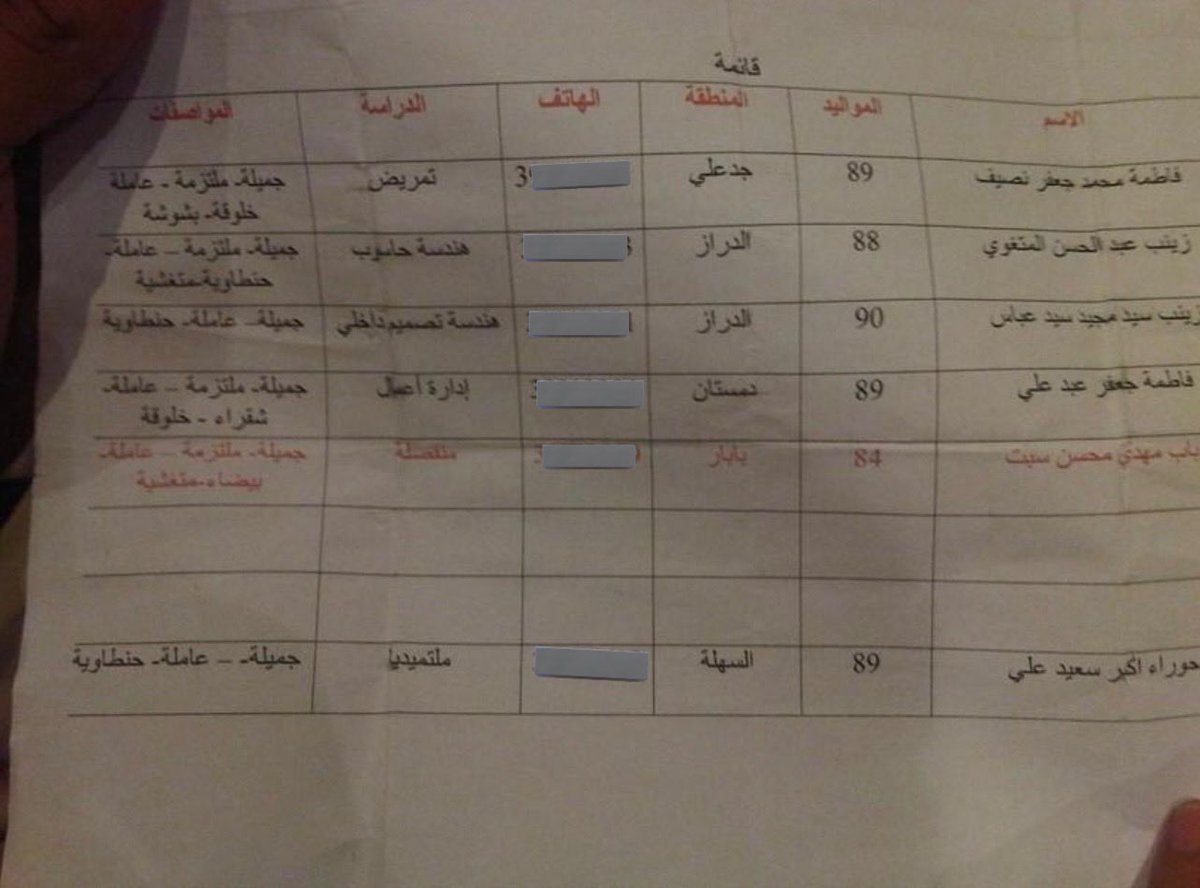 قائمة
الاسم المواليد المنطقة الهاتف الدراسة المواصفات
فاطمة محمد جعفر نصيف 89 جدعلي 39 تمريض جميلة- ملتزمة - عاملة
خلوقة- بشوشة
زينب عبد الحسن المتغوي 88 الدراز 3 هندسة حاسوب جميلة- ملتزمة – عاملة-
حنطاوية-متغشية
زينب سيد مجيد سيد عباس 90 الدراز 1 هندسة تصميم داخلي جميلة– عاملة- حنطاوية
فاطمة جعفر عبد علي 89 دمستان 3 إدارة أعمال جميلة- ملتزمة – عاملة-
شقراء - خلوقة
باب مهدي محسن سبت 84 باربار 3 9 منفصلة جميلة- ملتزمة – عاملة-
بيضاء-متغشية
حوراء اكبر سعيد علي 89 السهلة ملتميديا جميلة- – عاملة- حنطاوية